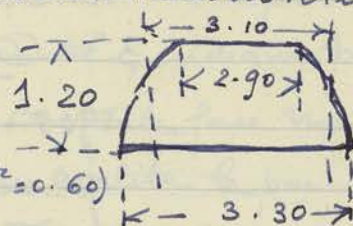 3.10
2.90
1.20
²=0.60)
3.30